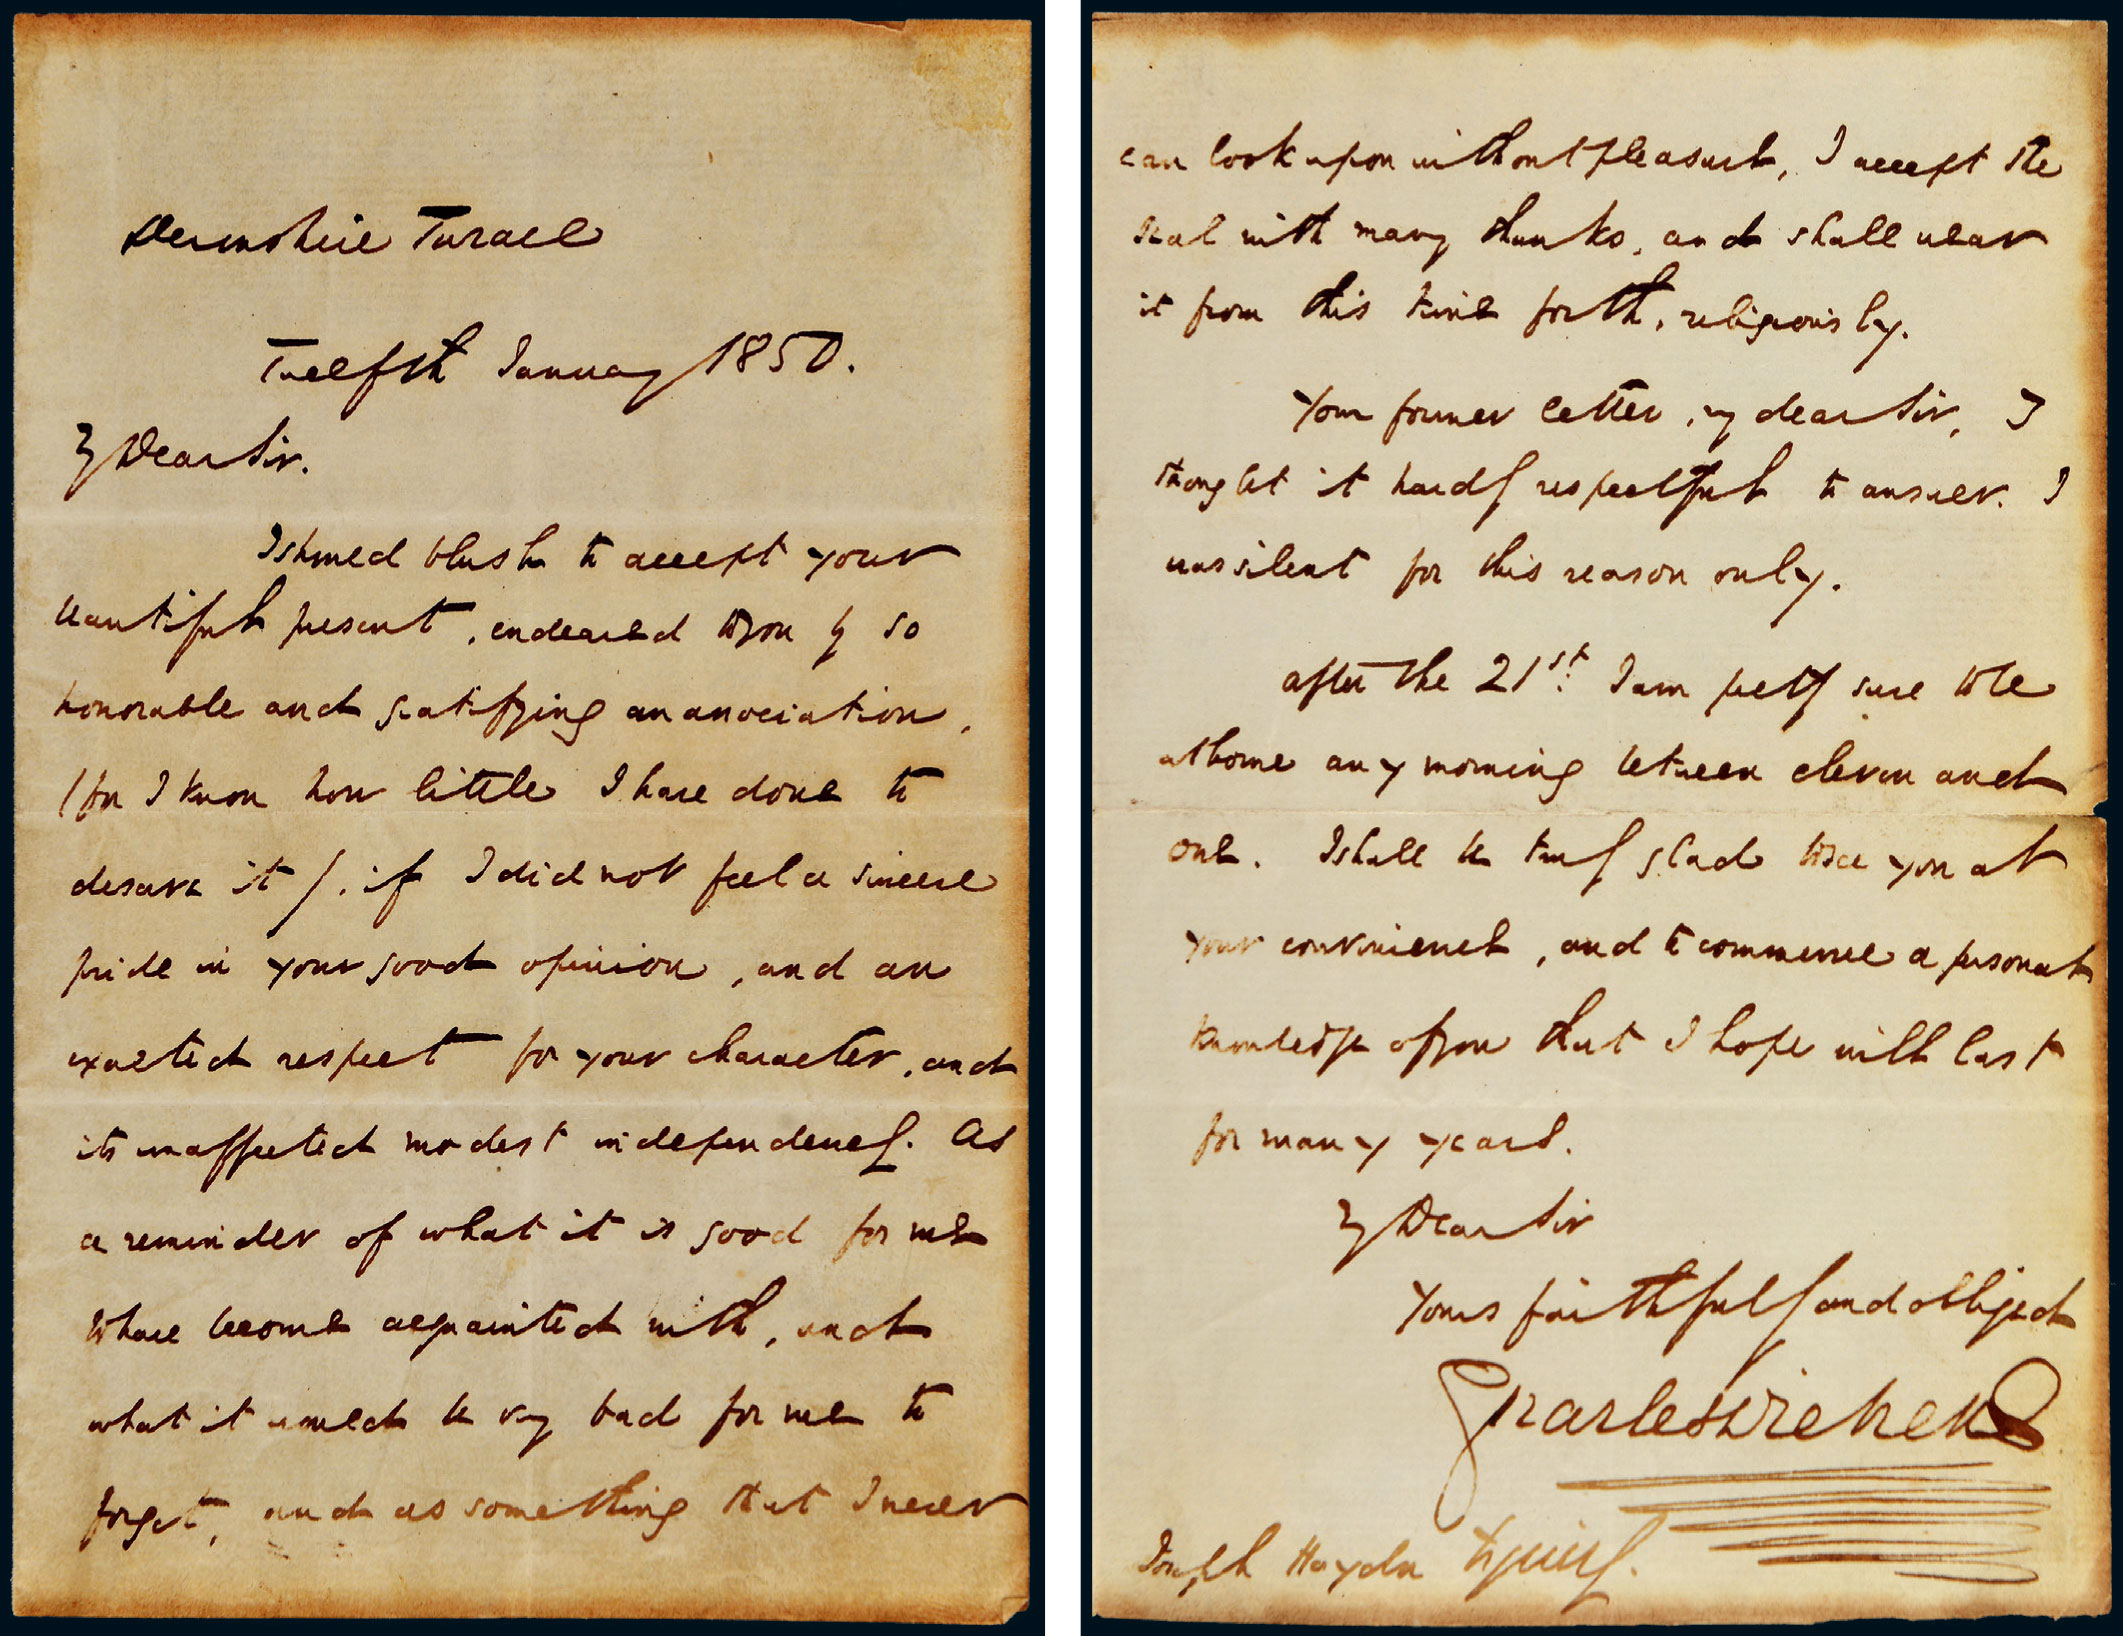 Devonshire Terrace
Twelfth January 1850.
My Dear Sir.
I should blush to accept your
beautiful present, endeared to you by so
honorable and gratifying an association,
(for I know how little I have done to
deserve it), if I did not feel a sincere
pride in your good opinion, and an
exalted respect for your character, and
its unaffected modest independence. As
a reminder of what it is good for me
to have become acquainted with, and
what it would be very bad for me to
forget, and as something that I never
can look upon without pleasure, I accept the
seal with many thanks, and shall wear
it from this time forth, religiously.
Your former letter, my dear Sir, I
thought it hardly respectful to answer. I
was silent for this reason only.
After the 21st. I am pretty sure to be
at home any morning between eleven and
one. I shall be truly glad to see you at
your convenience, and to commence a personal
knowledge of you that I hope will last
for many years.
My Dear Sir
Yours faithfully and obliged
Charles Dickens
Joseph Haydn Esquire.